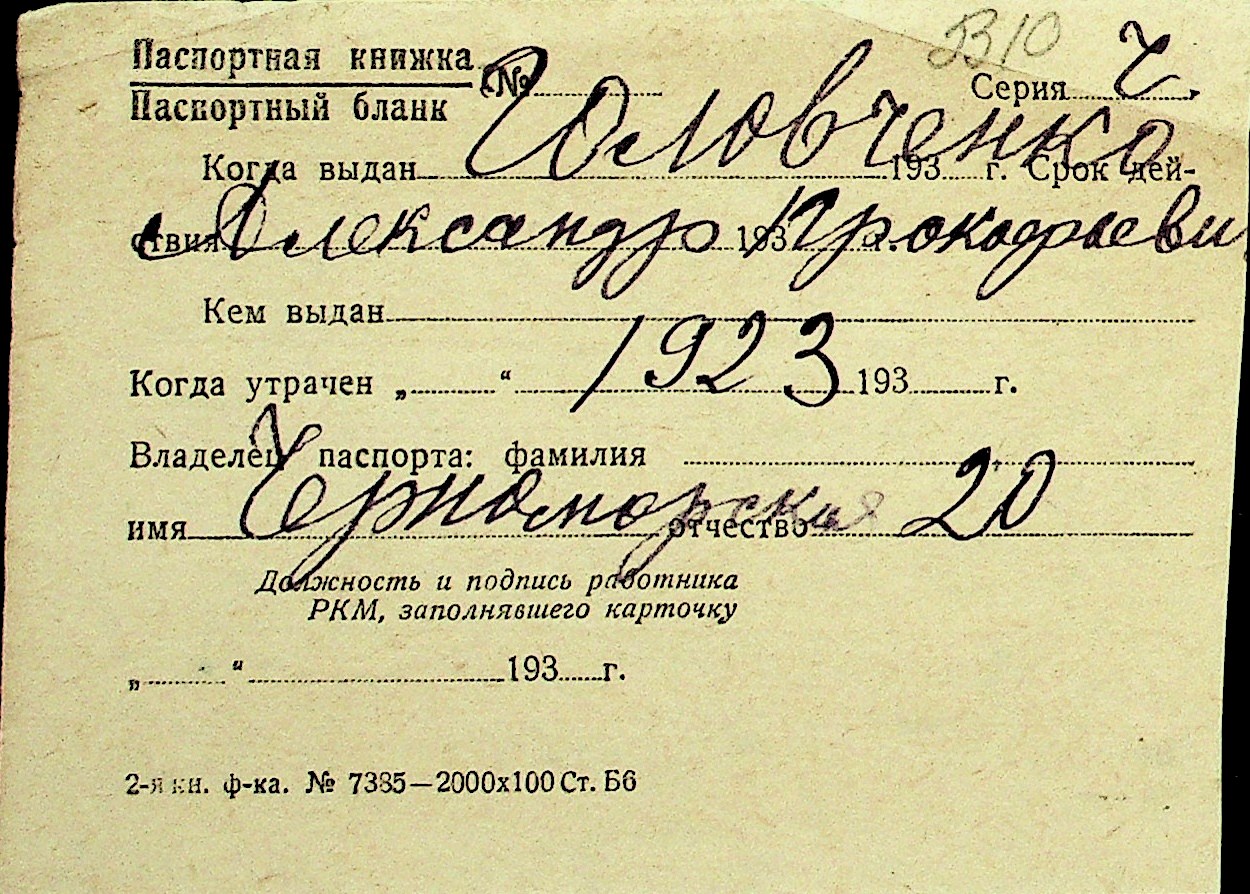 В10
Паспортная книжка № Серия Г.
Паспортный бланк
Головченко
Когда выдан 193 г. Срок дей-
ствия 193 г.
Александр Прокофьеви
Кем выдан
1923
Когда утрачен „ “ 193 г.
Владелец паспорта: фамилия
Черноморская 20
имя отчество
Должность и подпись работника
РКМ, заполнявшего карточку
„ “ 193 г.
2-я кн. ф-ка. № 7385—2000х100 Ст. Б6